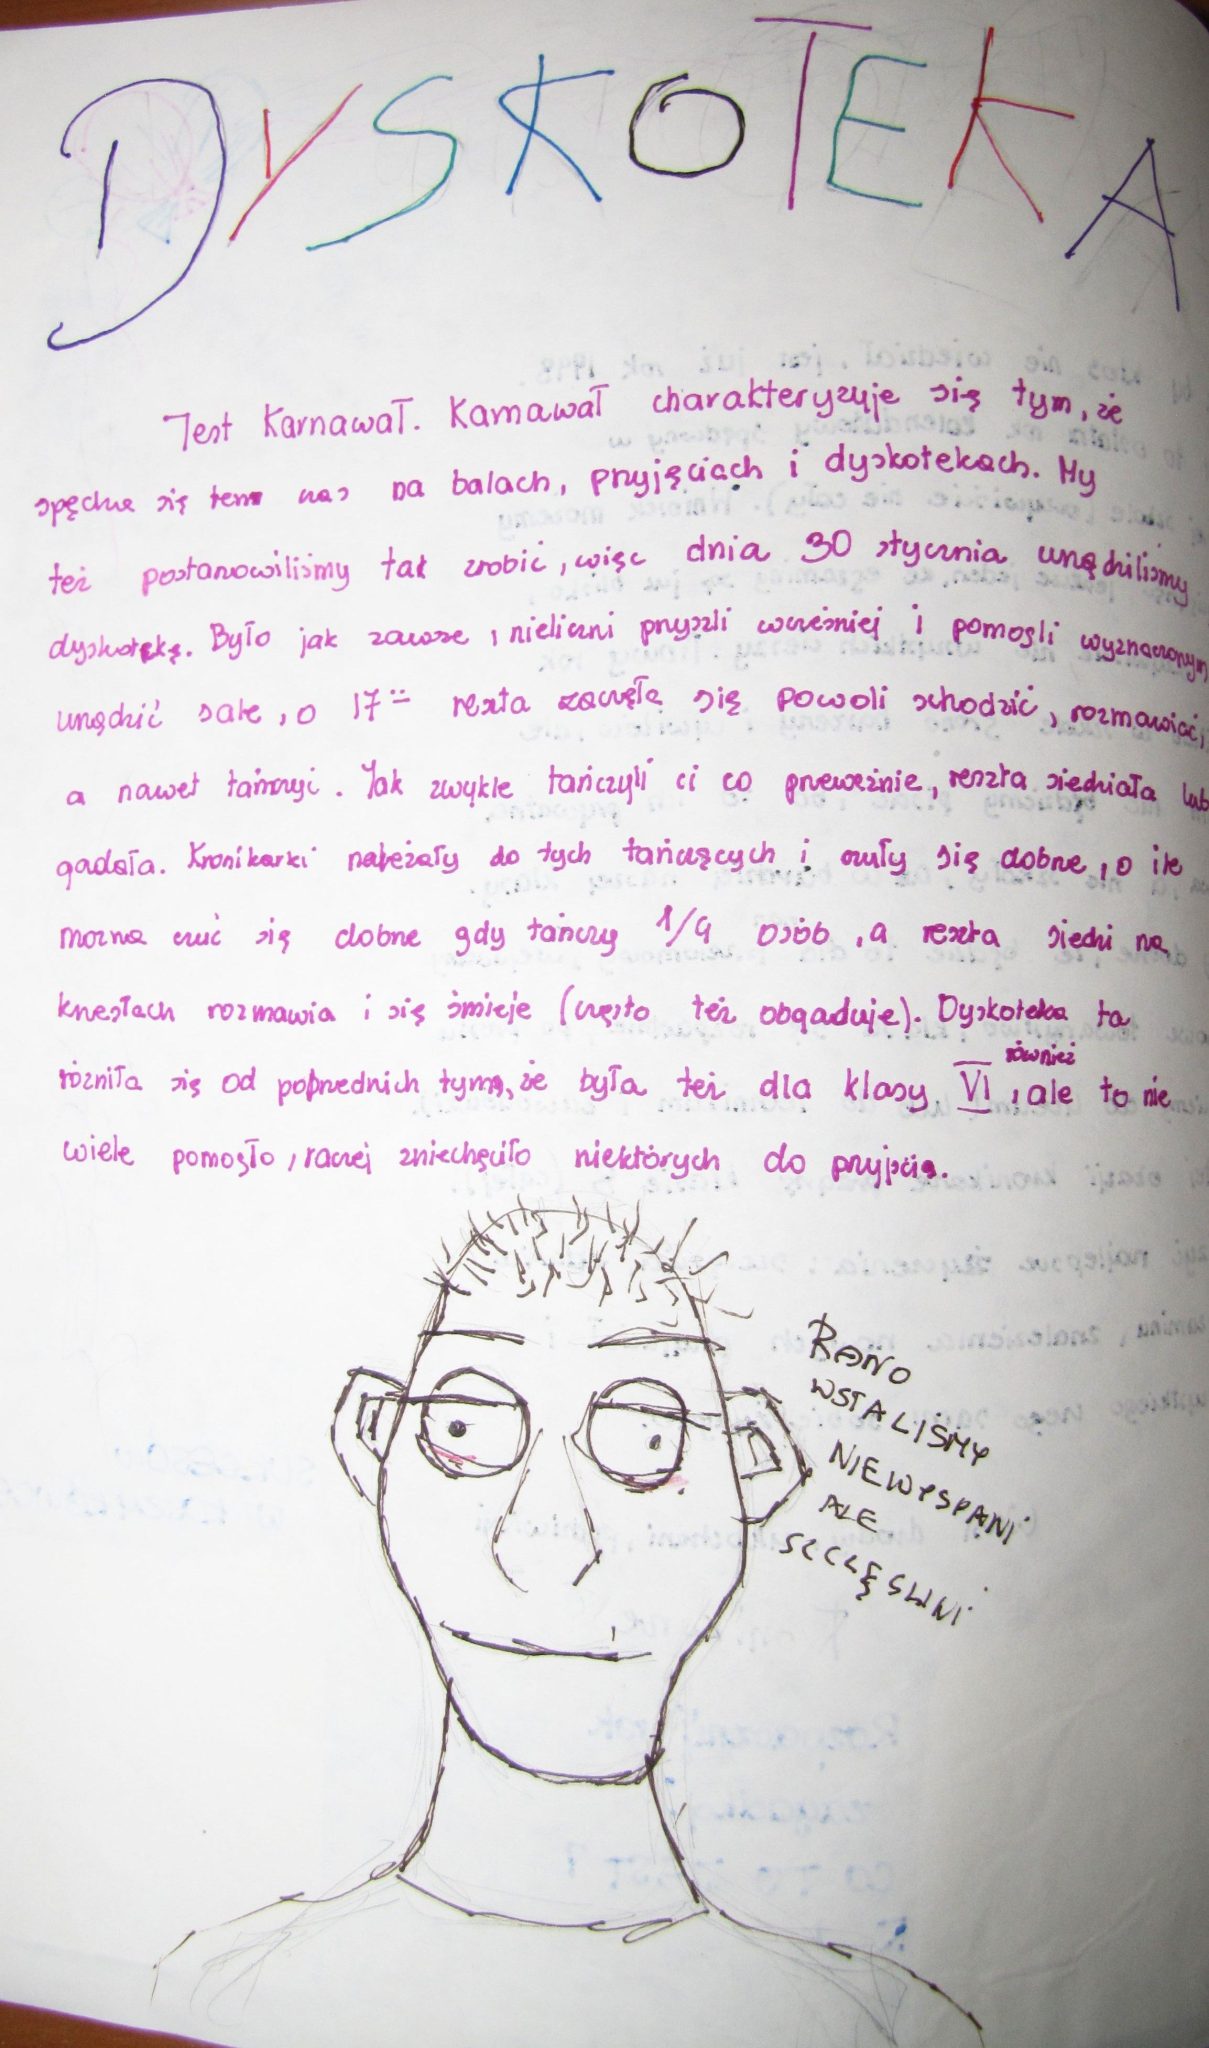 DYSKOTEKA
Jest Karnawał. Karnawał charakteryzuje się tym, że
spędza się ten czas na balach, przyjęciach i dyskotekach. My
też postanowiliśmy tak zrobić, więc dnia 30 stycznia urządziliśmy
dyskotekę. Było jak zawsze, nieliczni przyszli wcześniej i pomogli wyznaczonym
urządzić sale, o 17⁰⁰ reszta zaczęła się powoli schodzić, rozmawiać,
a nawet tańczyć. Jak zwykle tańczyli ci co przeważnie, reszta siedziała lub
gadała. Kronikarki należały do tych tańczących i czuły się dobrze, o ile
można czuć się dobrze gdy tańczy 1/4 osób, a reszta siedzi na
krzesłach rozmawia i się śmieje (często też obgaduje). Dyskoteka ta
różniła się od poprzednich tym, że była też dla klasy VI również, ale to nie
wiele pomogło, raczej zniechęciło niektórych do przyjścia.
RANO
WSTALIŚMY
NIEWYSPANI
ALE
SZCZĘŚLIWI